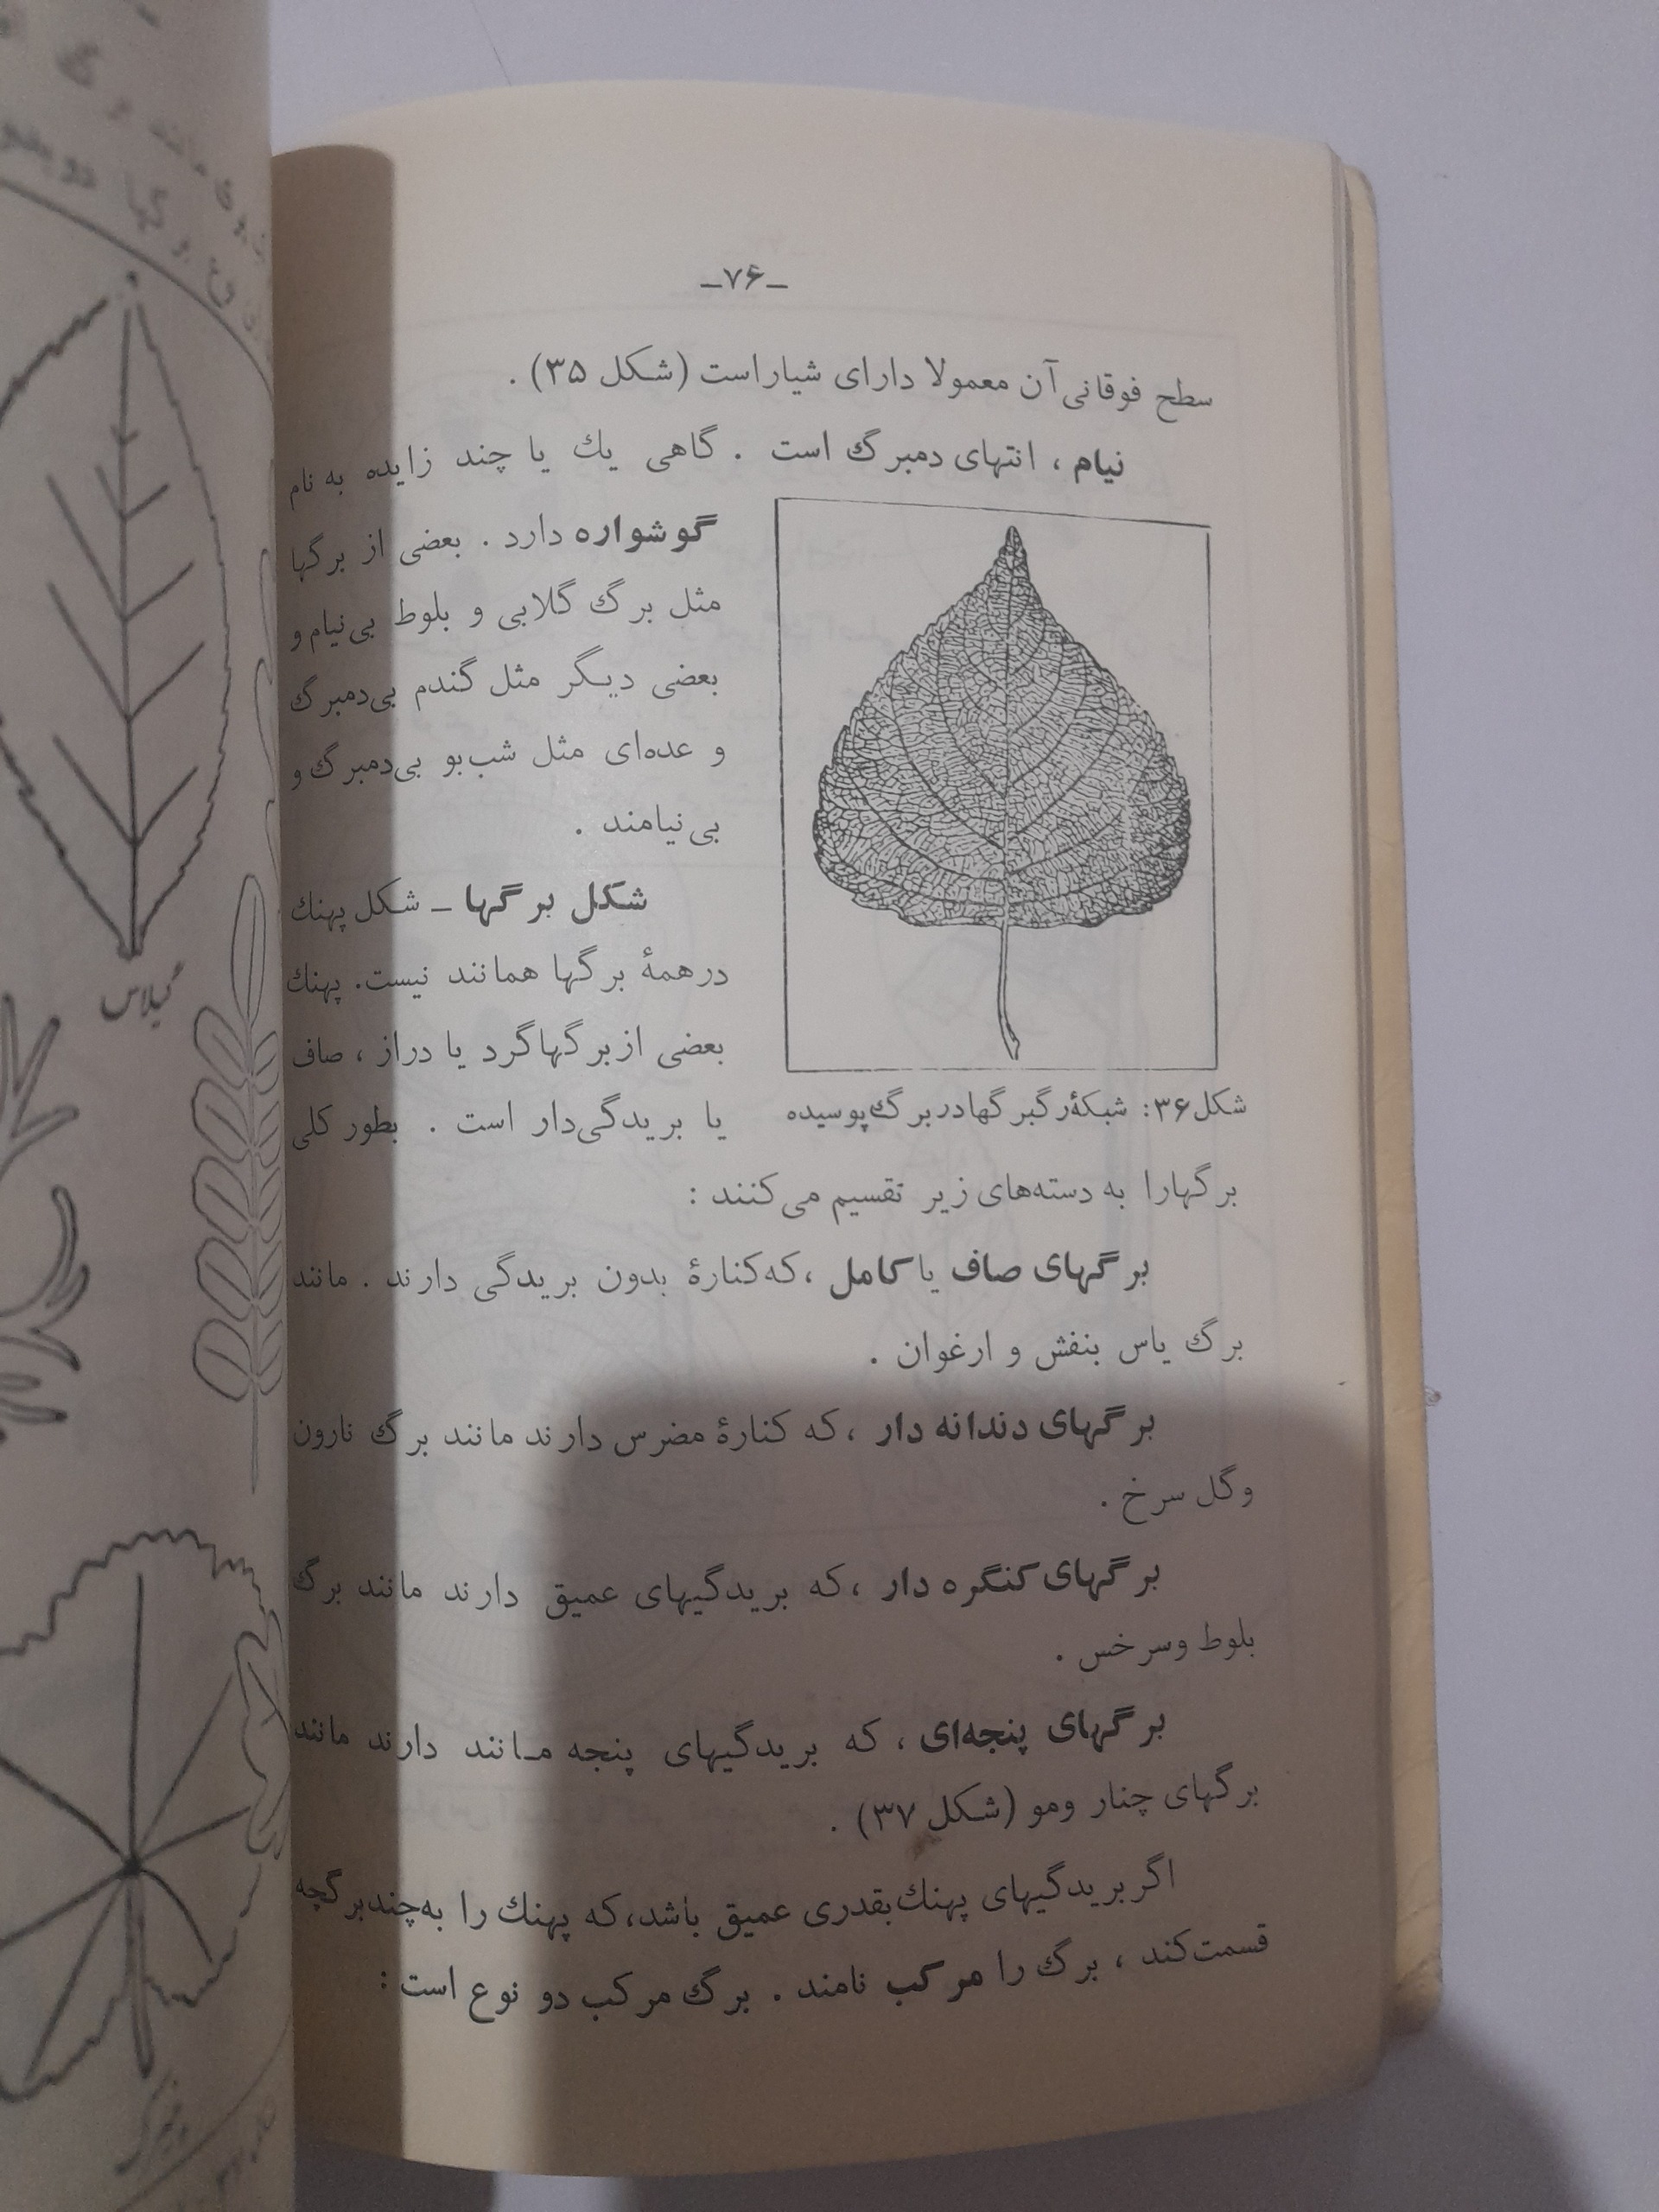 ـ۷۶ـ
سطح فوقانی آن معمولا دارای شیار است (شکل ۳۵) .
نیام ، انتهای دمبرگ است . گاهی یك یا چند زایده به نام
گوشواره دارد . بعضی از برگها
مثل برگ گلابی و بلوط بی‌نیام و
بعضی دیگر مثل گندم بی‌دمبرگ
و عده‌ای مثل شب‌بو بی‌دمبرگ و
بی‌نیامند .
شکل برگها ـ شکل پهنك
در همهٔ برگها همانند نیست. پهنك
بعضی از برگها گرد یا دراز ، صاف
یا بریدگی‌دار است . بطور کلی
شکل ۳۶: شبکهٔ رگبرگها در برگ پوسیده
برگها را به دسته‌های زیر تقسیم می‌کنند :
برگهای صاف یا کامل ، که کنارهٔ بدون بریدگی دارند . مانند
برگ یاس بنفش و ارغوان .
برگهای دندانه دار ، که کنارهٔ مضرس دارند مانند برگ نارون
و گل سرخ .
برگهای کنگره دار ، که بریدگیهای عمیق دارند مانند برگ
بلوط و سرخس .
برگهای پنجه‌ای ، که بریدگیهای پنجه مانند دارند مانند
برگهای چنار و مو (شکل ۳۷) .
اگر بریدگیهای پهنك بقدری عمیق باشد، که پهنك را به چند برگچه
قسمت کند ، برگ را مرکب نامند . برگ مرکب دو نوع است :
گیلاس